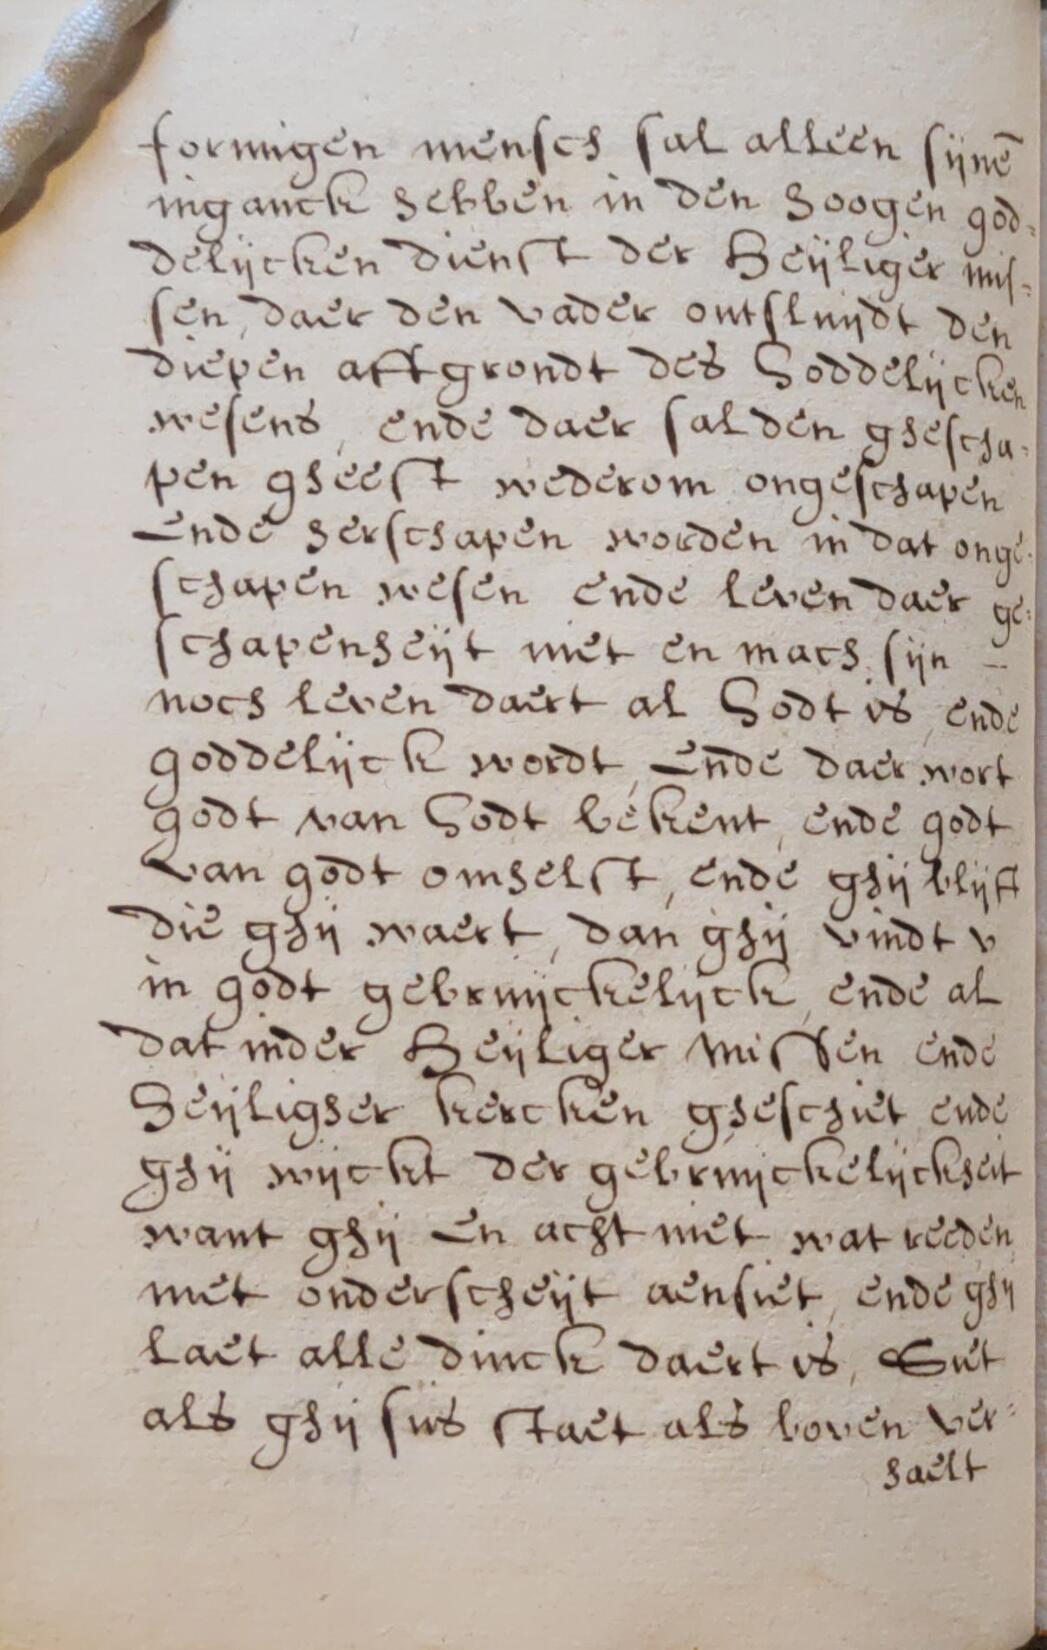 formigen mensch sal alleen sijnē
inganck hebben in den hoogen god-
delijcken dienst der Heijliger mis-
sen, daer den vader ontsluijdt den
diepen affgrondt des Goddelijcken
wesens, ende daer sal den ghescha-
pen gheest wederom ongeschapen
Ende herschapen worden in dat onge-
schapen wesen ende leven daer ge-
schapenheijt niet en mach sijn –
noch leven daert al Godt is, ende
goddelijck wordt, Ende daer wort
godt van Godt bekent, ende godt
van godt omhelst, ende ghij blijft
die ghij waert, dan ghij vindt v
in godt gebruijckelijck, ende al
dat inder Heijliger Missen ende
Heijligher kercken gheschiet ende
ghij wijckt der gebruijckelijckheit
want ghij En acht niet wat reeden
met onderscheijt aensiet, ende ghij
laet alle dinck daert is, Siet
als ghij sus staet als boven ver-
haelt